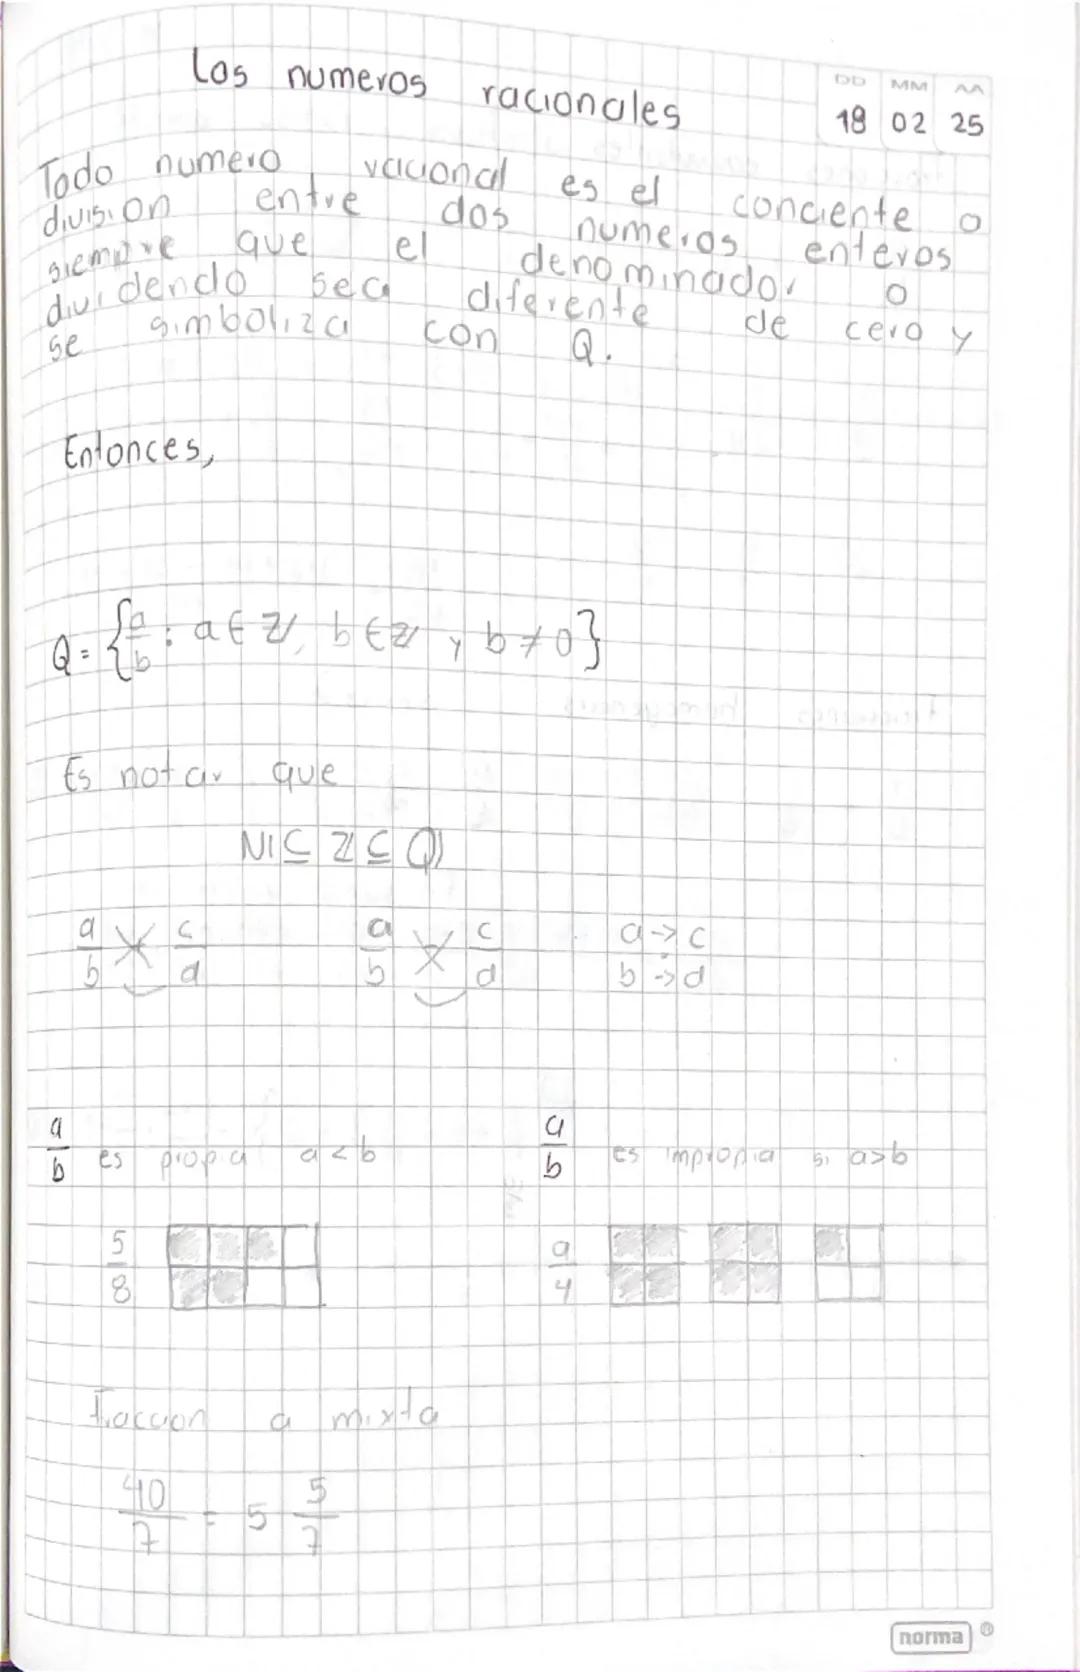 Los numeros racionales
DD MM AA
18 02 25
Todo numero racional es el conciente o
division entre dos numeros enteros
siempre que el denominador o
dividendo sea diferente de cero y
se simboliza con Q.
Entonces,
Q = {a/b : a ∈ ℤ, b ∈ ℤ y b ≠ 0}
Es notar que
ℕ ⊆ ℤ ⊆ ℚ
a/b × c/d a/b × c/d a → c
b → d
a/b es propia a < b a/b es impropia si a>b
5/8 9/4
Fraccion a mixta
40/7 = 5 5/7
norma